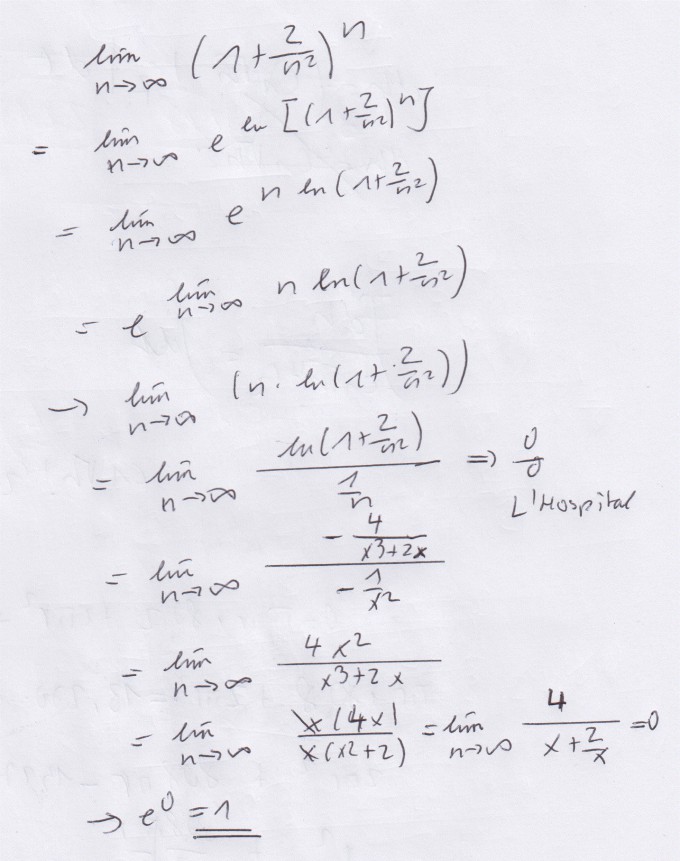 lim n→∞ (1+2/n²)^n
= lim n→∞ e^(ln[(1+2/n²)^n])
= lim n→∞ e^(n ln(1+2/n²))
= e^(lim n→∞ n ln(1+2/n²))
→ lim n→∞ (n · ln(1+2/n²))
= lim n→∞ ln(1+2/n²) / (1/n) ⇒ 0/0
L'Hospital
= lim n→∞ (- 4/(x3+2x)) / (- 1/x²)
= lim n→∞ 4x² / (x3+2x)
= lim n→∞ x(4x) / x(x2+2) = lim n→∞ 4 / (x+2/x) =0
→ e^0 = 1